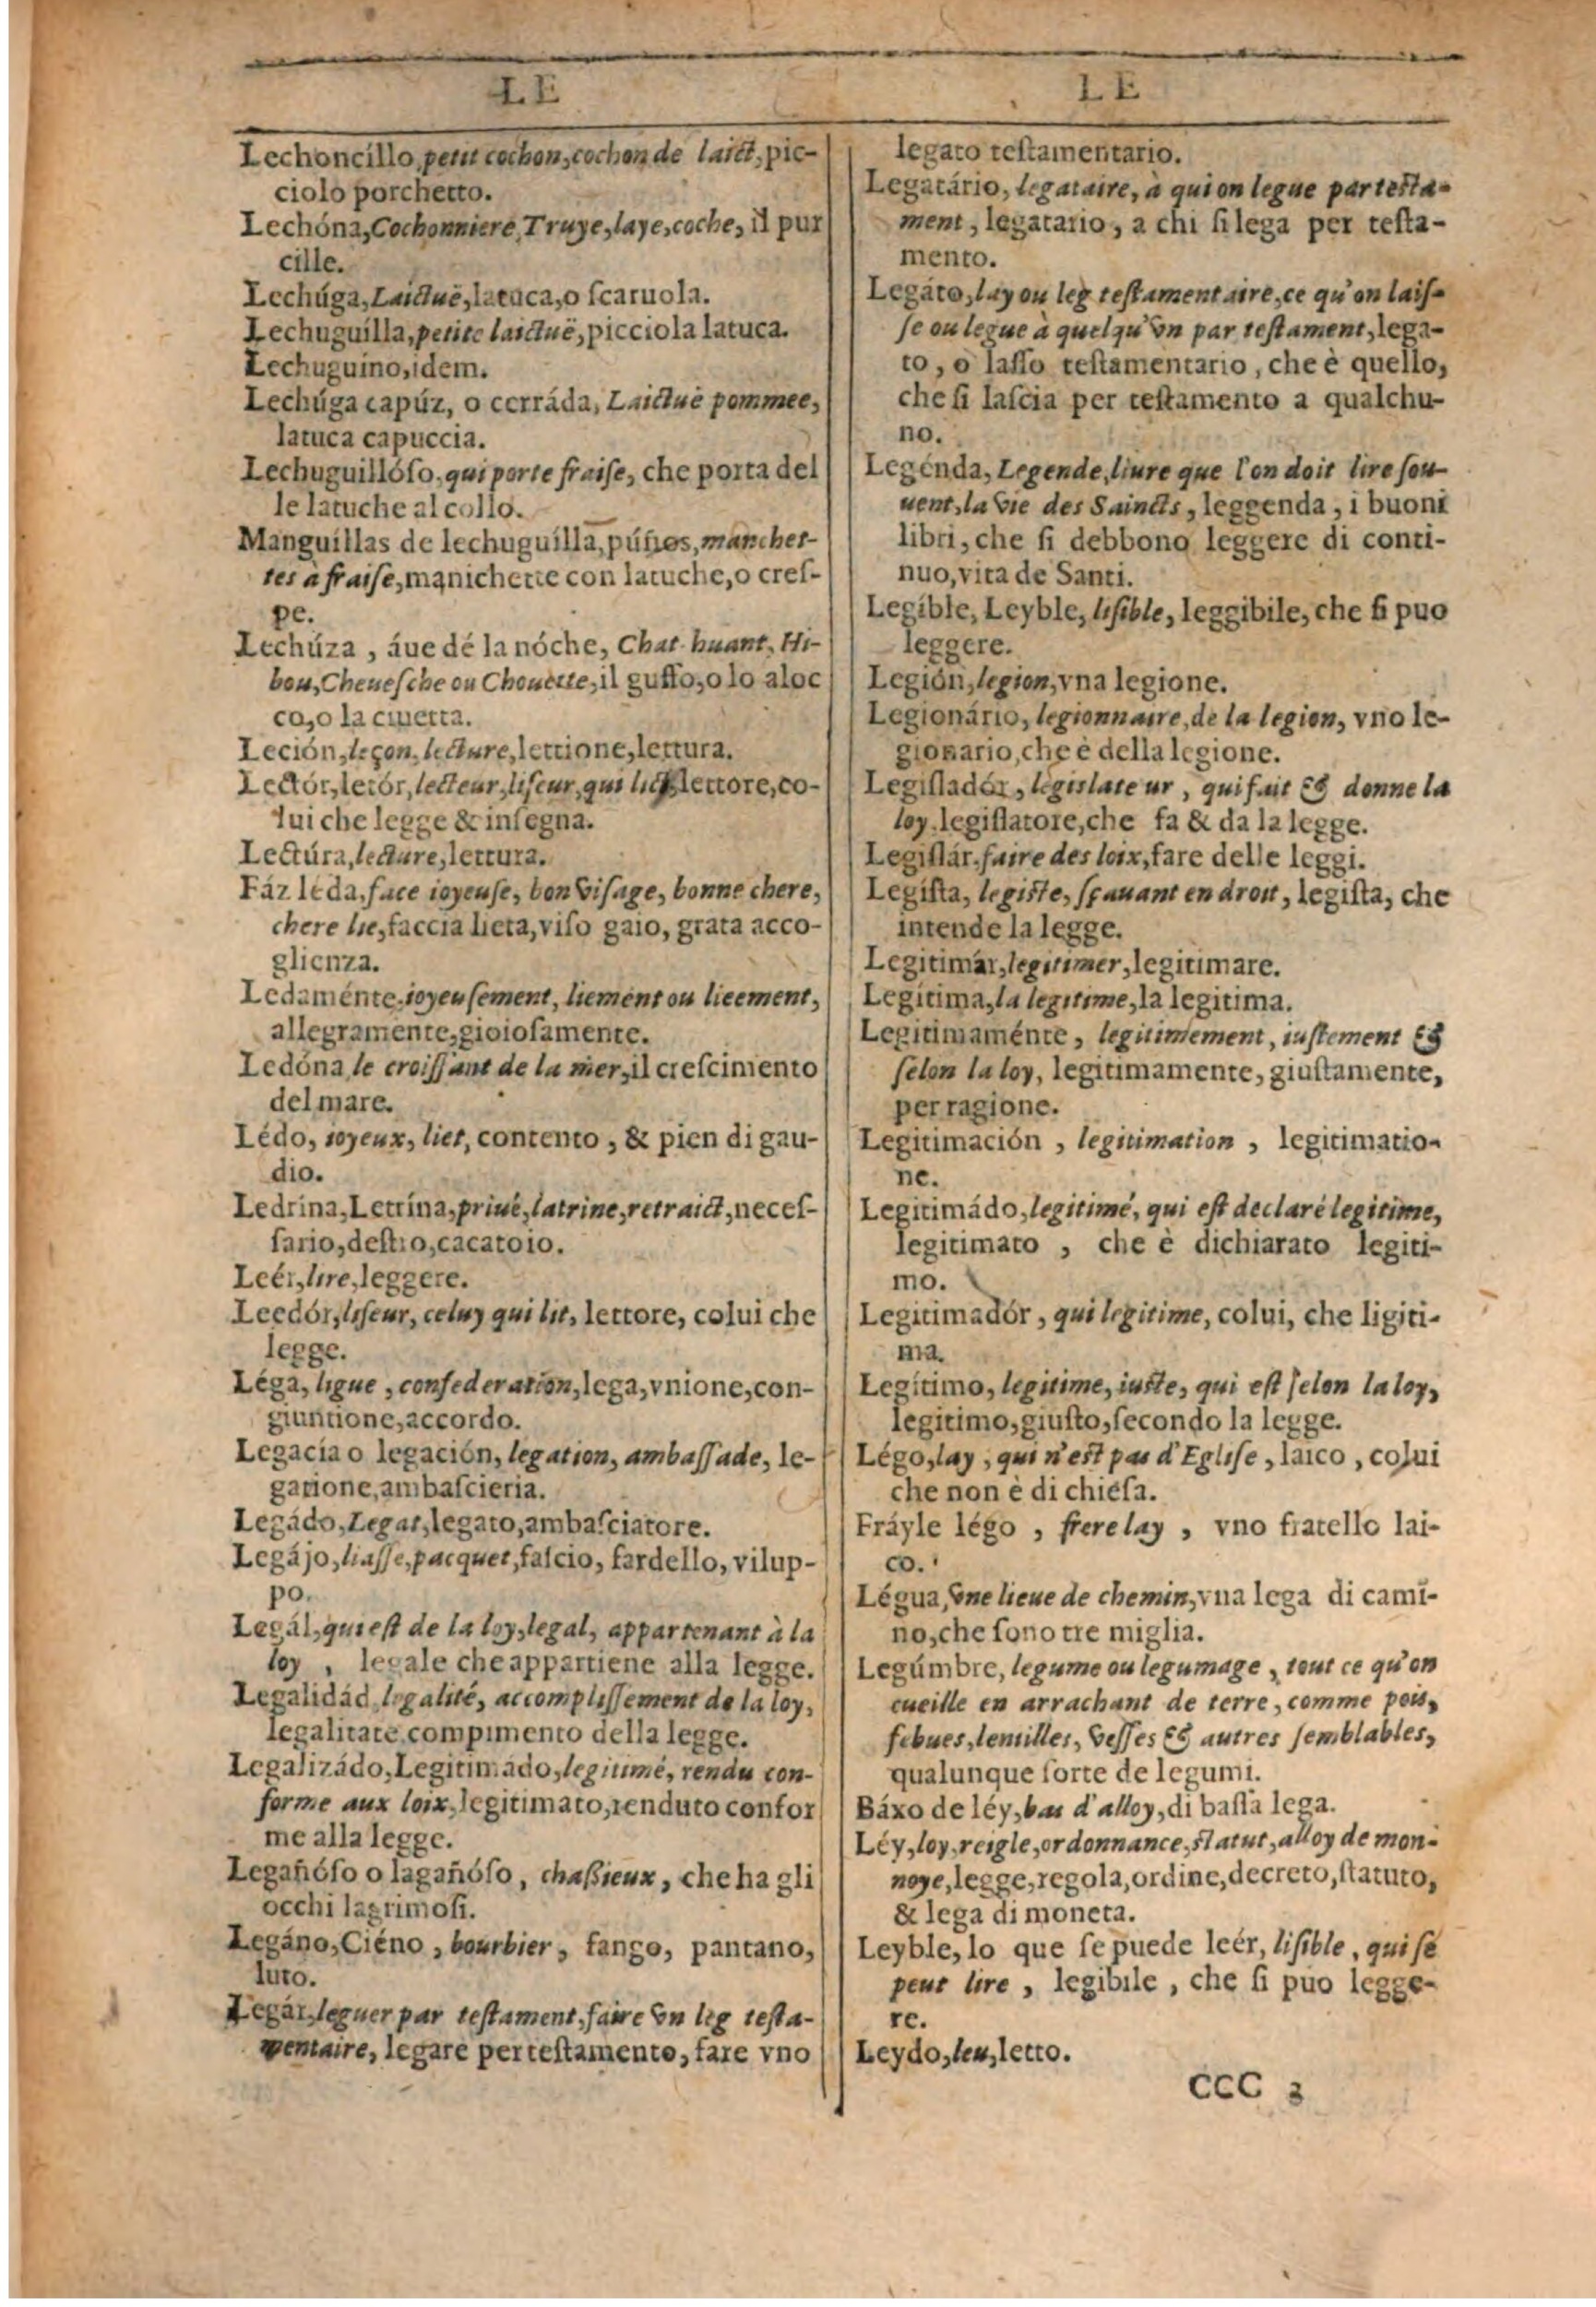 LE
LE
Lechoncíllo, petit cochon, cochon de laict, pic-
ciolo porchetto.
Lechóna, Cochonniere, Truye, laye, coche, il pur
cille.
Lechúga, Laictuë, latuca, o ſcaruola.
Lechuguílla, petite laictuë, picciola latuca.
Lechuguíno, idem.
Lechúga capúz, o cerráda, Laictuë pommee,
latuca capuccia.
Lechuguillóſo, qui porte fraiſe, che porta del
le latuche al collo.
Manguíllas de lechuguílla, púños, manchet-
tes à fraiſe, manichette con latuche, o creſ-
pe.
Lechúza, áue dé la nóche, Chat-huant, Hi-
bou, Cheueſche ou Chouette, il guffo, o lo aloc
co, o la ciuetta.
Leción, leçon, lecture, lettione, lettura.
Lectór, letór, lecteur, liſeur, qui lict, lettore, co-
lui che legge & inſegna.
Lectúra, lecture, lettura.
Fáz léda, face ioyeuſe, bon viſage, bonne chere,
chere lie, faccia lieta, viſo gaio, grata acco-
glienza.
Ledaménte, ioyeuſement, liement ou lieement,
allegramente, gioioſamente.
Ledóna, le croiſſant de la mer, il creſcimento
del mare.
Lédo, ioyeux, liet, contento, & pien di gau-
dio.
Ledrína, Letrína, priué, latrine, retraict, neceſ-
ſario, deſtro, cacatoio.
Leér, lire, leggere.
Leedór, liſeur, celuy qui lit, lettore, colui che
legge.
Léga, ligue, confederation, lega, vnione, con-
giuntione, accordo.
Legacía o legación, legation, ambaſſade, le-
gatione, ambaſcieria.
Legádo, Legat, legato, ambaſciatore.
Legájo, liaſſe, pacquet, faſcio, fardello, vilup-
po.
Legál, qui eſt de la loy, legal, appartenant à la
loy, legale che appartiene alla legge.
Legalidád, legalité, accompliſſement de la loy,
legalitate, compimento della legge.
Legalizádo, Legitimádo, legitimé, rendu con-
forme aux loix, legitimato, renduto confor
me alla legge.
Legañóſo o lagañóſo, chaſsieux, che ha gli
occhi lagrimoſi.
Legáno, Ciéno, bourbier, fango, pantano,
luto.
Legár, leguer par teſtament, faire vn leg teſta-
mentaire, legare per teſtamento, fare vno
legato teſtamentario.
Legatário, legataire, à qui on legue par teſta-
ment, legatario, a chi ſi lega per teſta-
mento.
Legáto, lay ou leg teſtamentaire, ce qu'on laiſ-
ſe ou legue à quelqu'vn par teſtament, lega-
to, o laſſo teſtamentario, che è quello,
che ſi laſcia per teſtamento a qualchu-
no.
Legénda, Legende, liure que l'on doit lire ſou-
uent, la vie des Saincts, leggenda, i buoni
libri, che ſi debbono leggere di conti-
nuo, vita de Santi.
Legíble, Leyble, liſible, leggibile, che ſi puo
leggere.
Legión, legion, vna legione.
Legionário, legionnaire, de la legion, vno le-
gionario, che è della legione.
Legiſladór, legislateur, qui fait & donne la
loy, legiſlatore, che fa & da la legge.
Legiſlár, faire des loix, fare delle leggi.
Legíſta, legiſte, ſçauant en droit, legiſta, che
intende la legge.
Legitimár, legitimer, legitimare.
Legítima, la legitime, la legitima.
Legitimaménte, legitimement, iuſtement &
ſelon la loy, legitimamente, giuſtamente,
per ragione.
Legitimación, legitimation, legitimatio-
ne.
Legitimádo, legitimé, qui eſt declaré legitime,
legitimato, che è dichiarato legiti-
mo.
Legitimadór, qui legitime, colui, che ligiti-
ma.
Legítimo, legitime, iuſte, qui eſt ſelon la loy,
legitimo, giuſto, ſecondo la legge.
Légo, lay, qui n'eſt pas d'Egliſe, laico, colui
che non è di chieſa.
Fráyle légo, frere lay, vno fratello lai-
co.
Légua, vne lieue de chemin, vna lega di cami-
no, che ſono tre miglia.
Legúmbre, legume ou legumage, tout ce qu'on
cueille en arrachant de terre, comme pois,
febues, lentilles, veſſes & autres ſemblables,
qualunque ſorte de legumi.
Báxo de léy, bas d'alloy, di baſſa lega.
Léy, loy, reigle, ordonnance, ſtatut, alloy de mon-
noye, legge, regola, ordine, decreto, ſtatuto,
& lega di moneta.
Leyble, lo que ſe puede leér, liſible, qui ſe
peut lire, legibile, che ſi puo legge-
re.
Leydo, leu, letto.
CCC 3